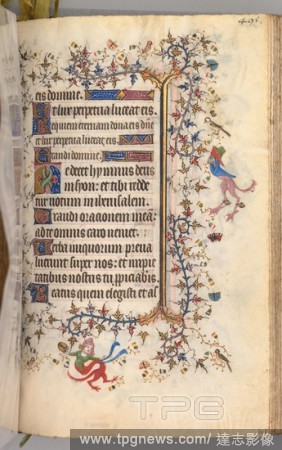 eis domine.
Et lux perpetua luceat eis.
Requiem eternam dona eis dne
et lux perpetua luceat eis.
Exaudi domine.
Te decet hymnus deus
in syon: et tibi redde
tur votum in iherusalem.
Exaudi orationem meam
ad te omnis caro veniet.
Verba iniquorum preva
luerunt super nos: et impie
tatibus nostris tu propiciaberis
Beatus quem elegisti et as
TPG
www.tpgnews.com/ 達志影像